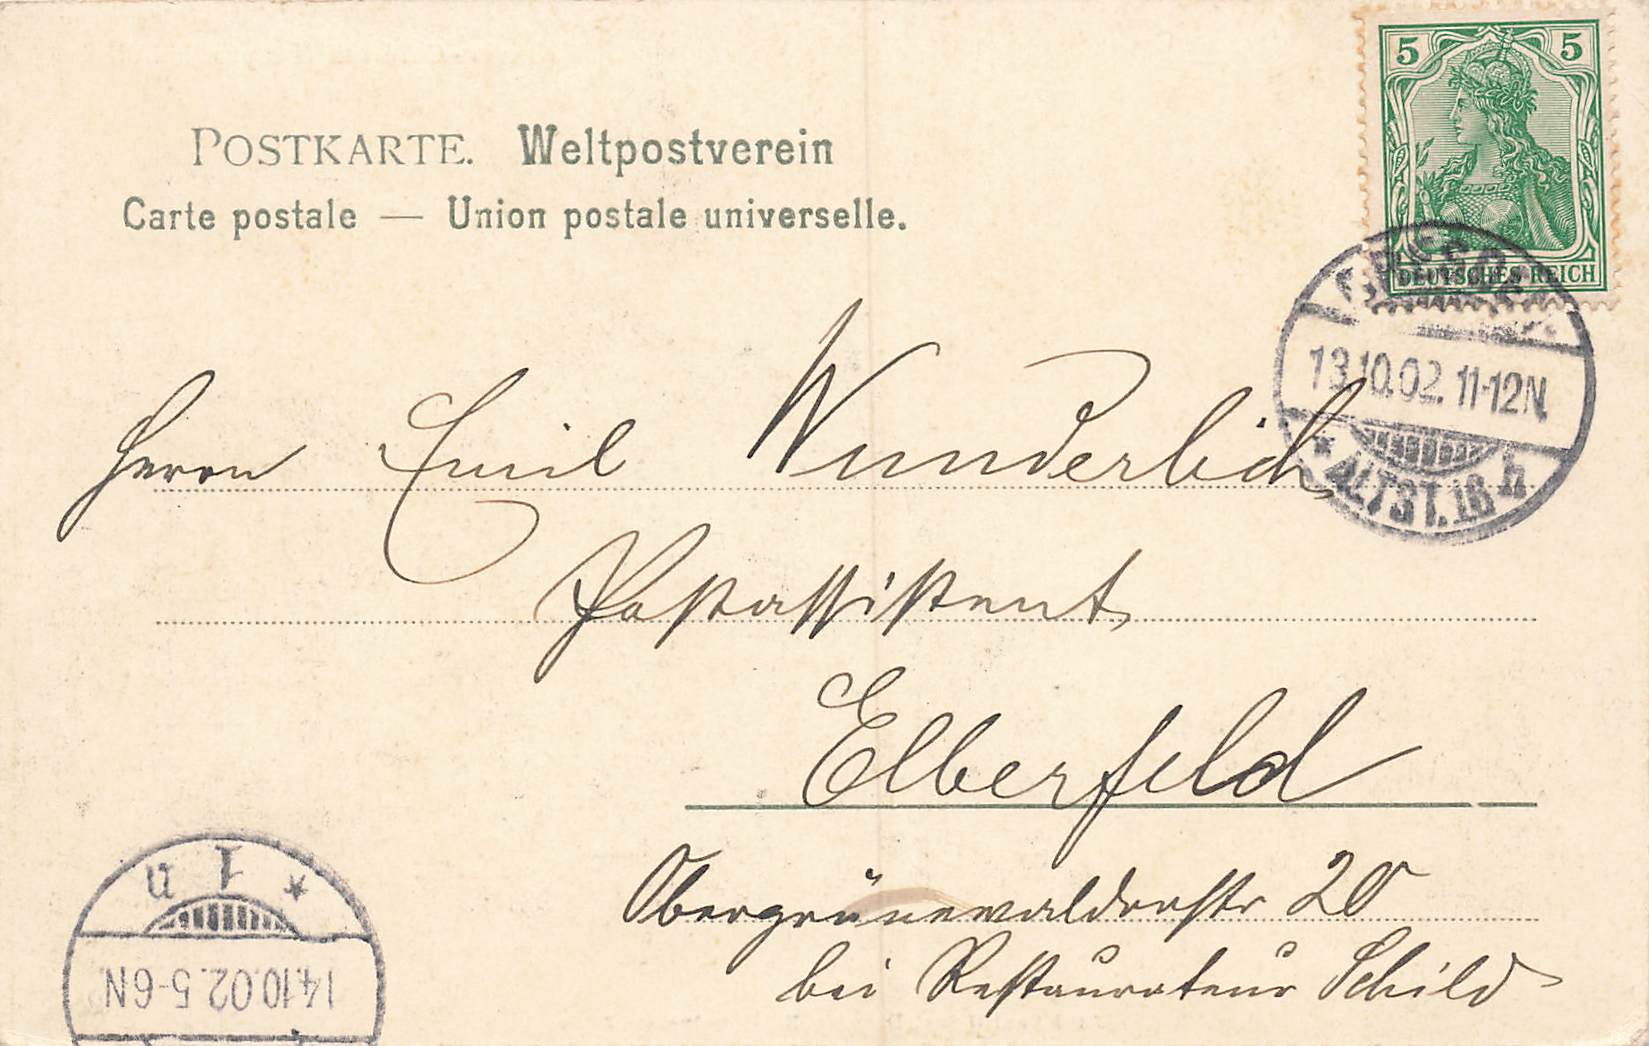 POSTKARTE. Weltpostverein
Carte postale — Union postale universelle.
5 5
DEUTSCHES REICH
13.10.02. 11-12N.
* ALTST. 16 h
Herrn Emil Wunderlich
Postassistent
Elberfeld
Obergrünewalderstr 20
bei Restaurateur Schild
* 1 n
14.10.02. 5-6N